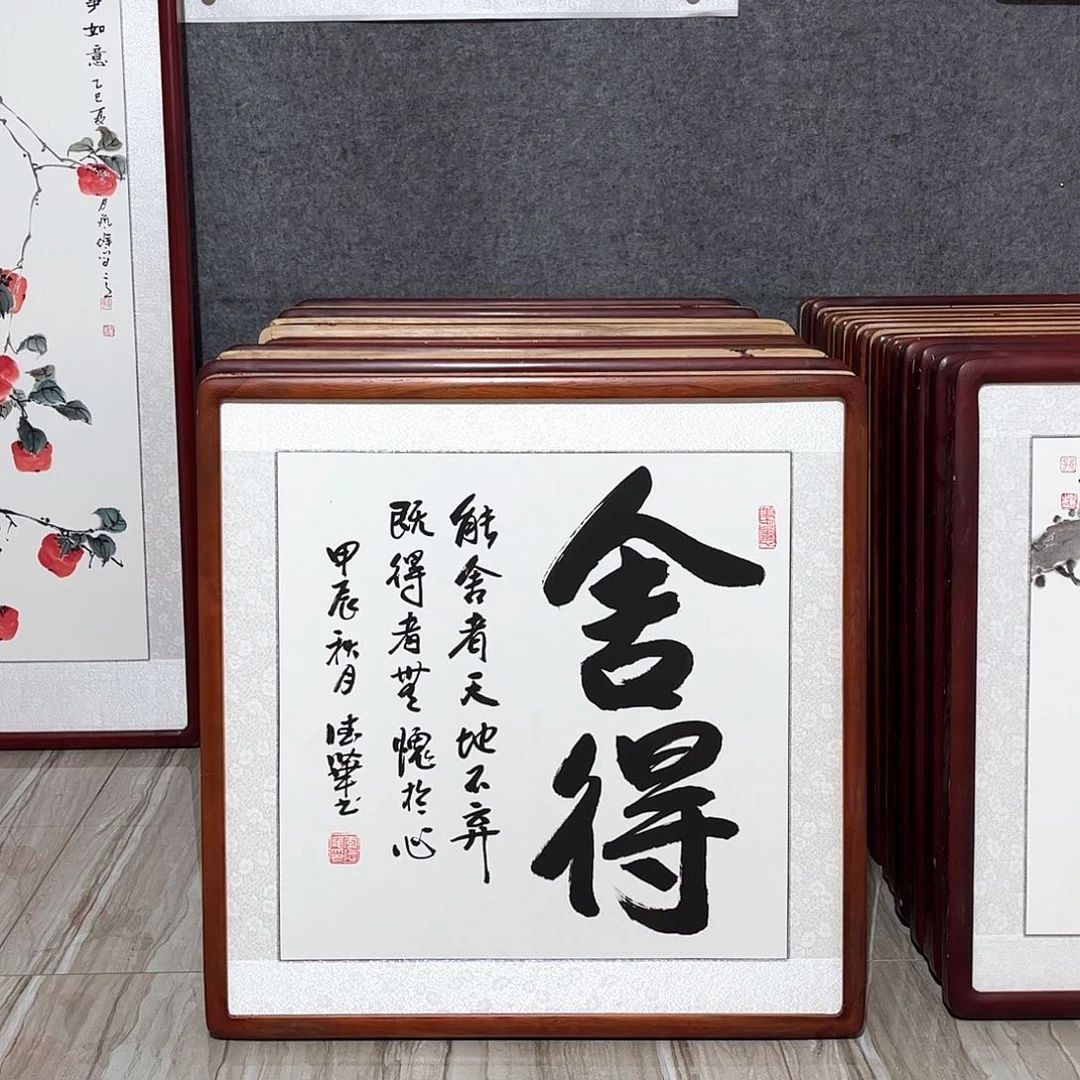 舍得
能舍者天地不弃
既得者無愧於心
甲辰秋月 德華书
如意
乙巳夏